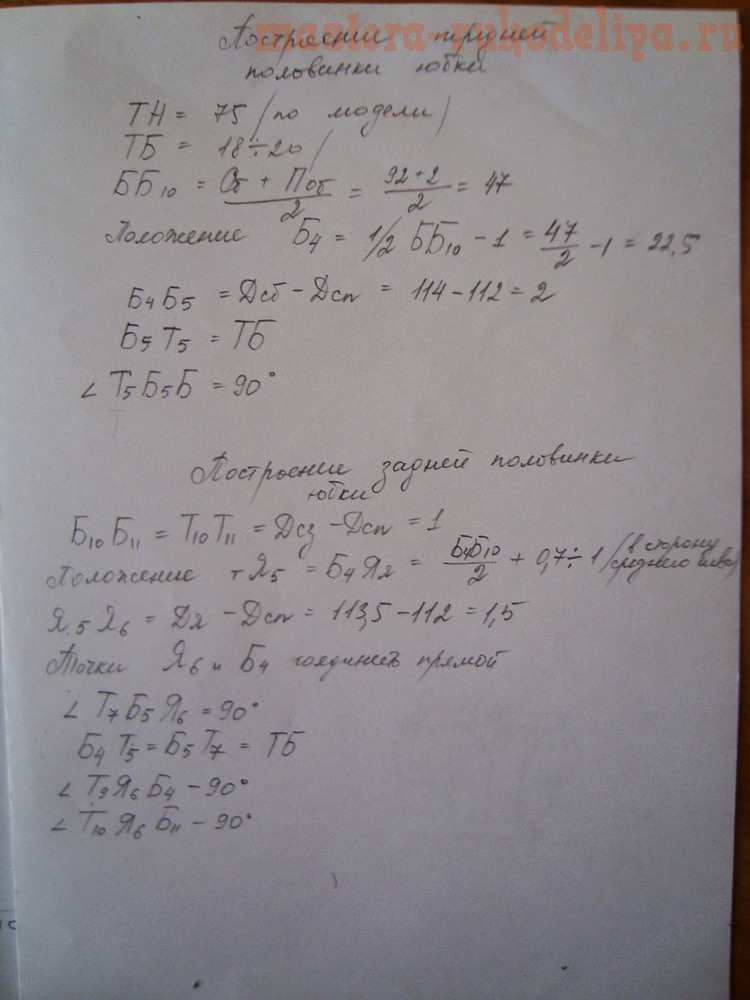 masterа-rukodeliya.ru
Построение передней
половинки юбки
ТН = 75 (по модели)
ТБ = 18÷20
ББ10 = (Сб + Поб)/2 = (92+2)/2 = 47
Положение Б4 = 1/2 ББ10 - 1 = 47/2 - 1 = 22,5
Б4Б5 = Дсб - Дсп = 114 - 112 = 2
Б5Т5 = ТБ
∠ Т5Б5Б = 90°
Построение задней половинки
юбки
Б10Б11 = Т10Т11 = Дсз - Дсп = 1
Положение т Я5 = Б4Я5 = Б4Б10/2 + 0,7÷1 (в сторону среднего шва)
Я5Я6 = Дя - Дсп = 113,5 - 112 = 1,5
Точки Я6 и Б4 соединить прямой
∠ Т7Б5Я6 = 90°
Б4Т5 = Б5Т7 = ТБ
∠ Т9Я6Б4 - 90°
∠ Т10Я6Б11 - 90°